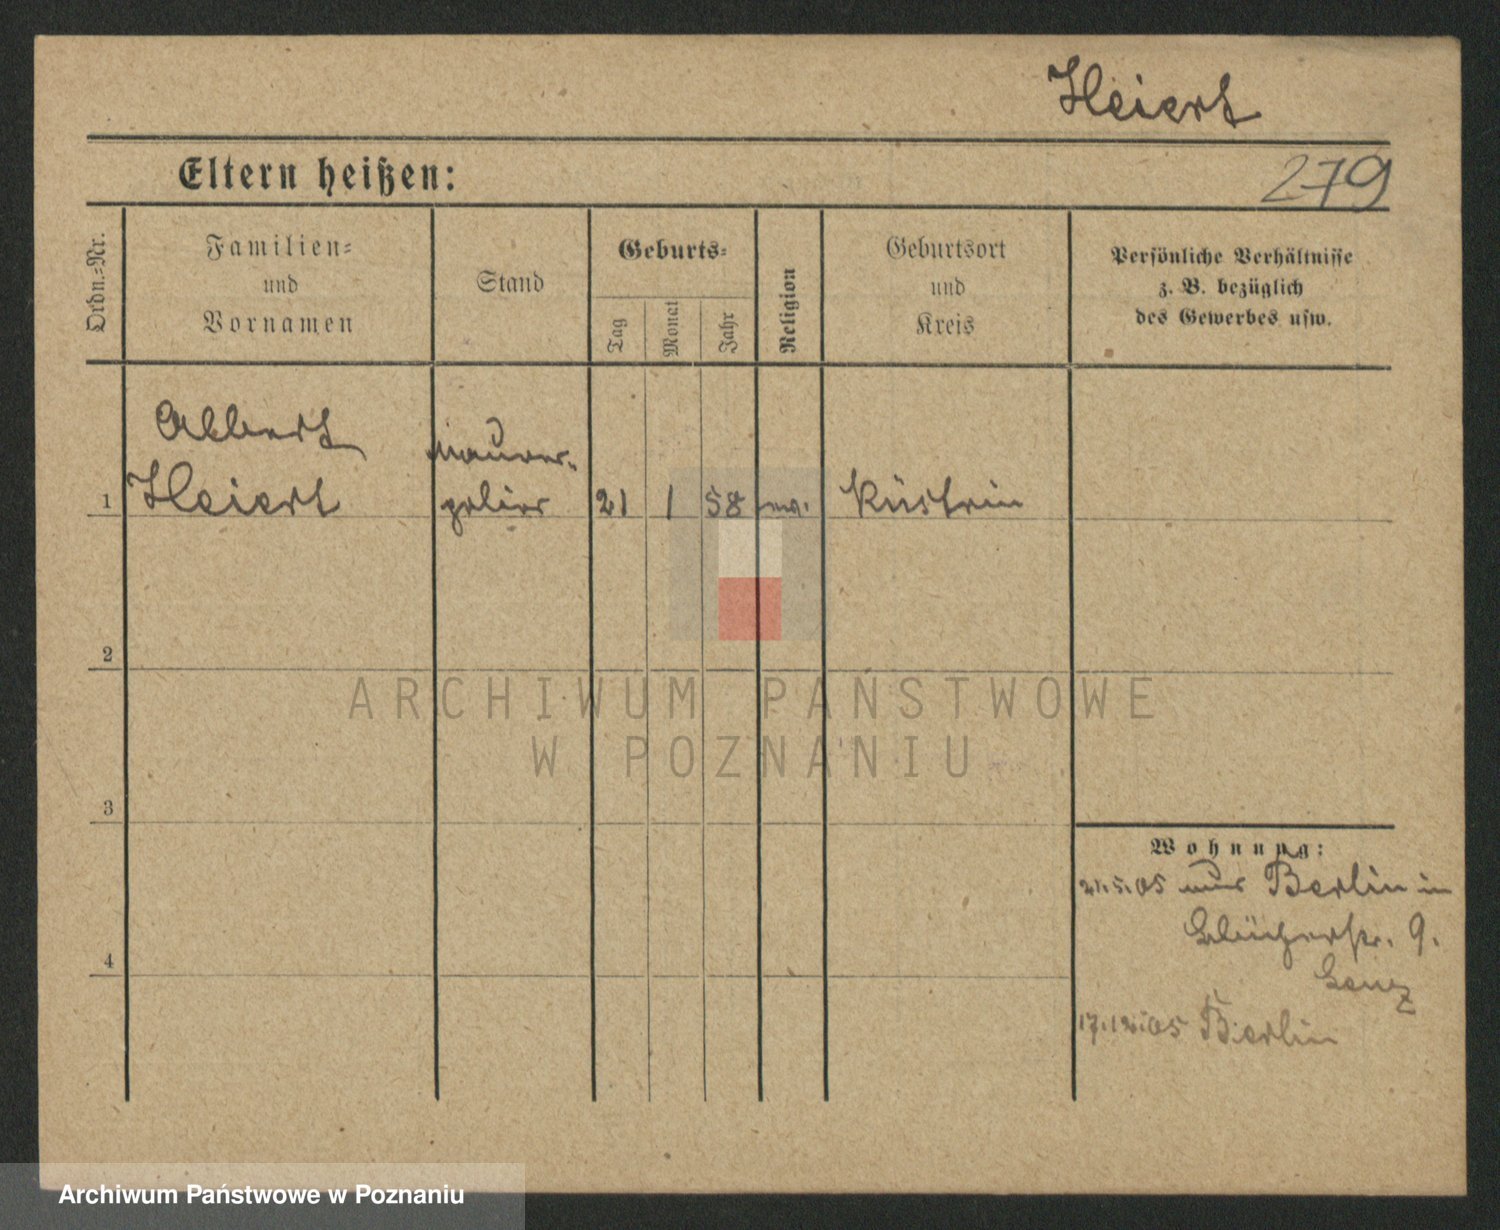 Heiert
Eltern heißen:
279
Ordn.=Nr.
Familien=
und
Vornamen
Stand
Geburts=
Tag
Monat
Jahr
Religion
Geburtsort
und
Kreis
Persönliche Verhältnisse
z. B. bezüglich
des Gewerbes usw.
Albert
Heiert
Maurer-
polier
1
21
1
58
ev.
Küstrin
2
3
4
Wohnung:
21.5.05 Berlin in
Blücherstr. 9.
17.12.05 Berlin
ARCHIWUM PAŃSTWOWE
W POZNANIU
Archiwum Państwowe w Poznaniu